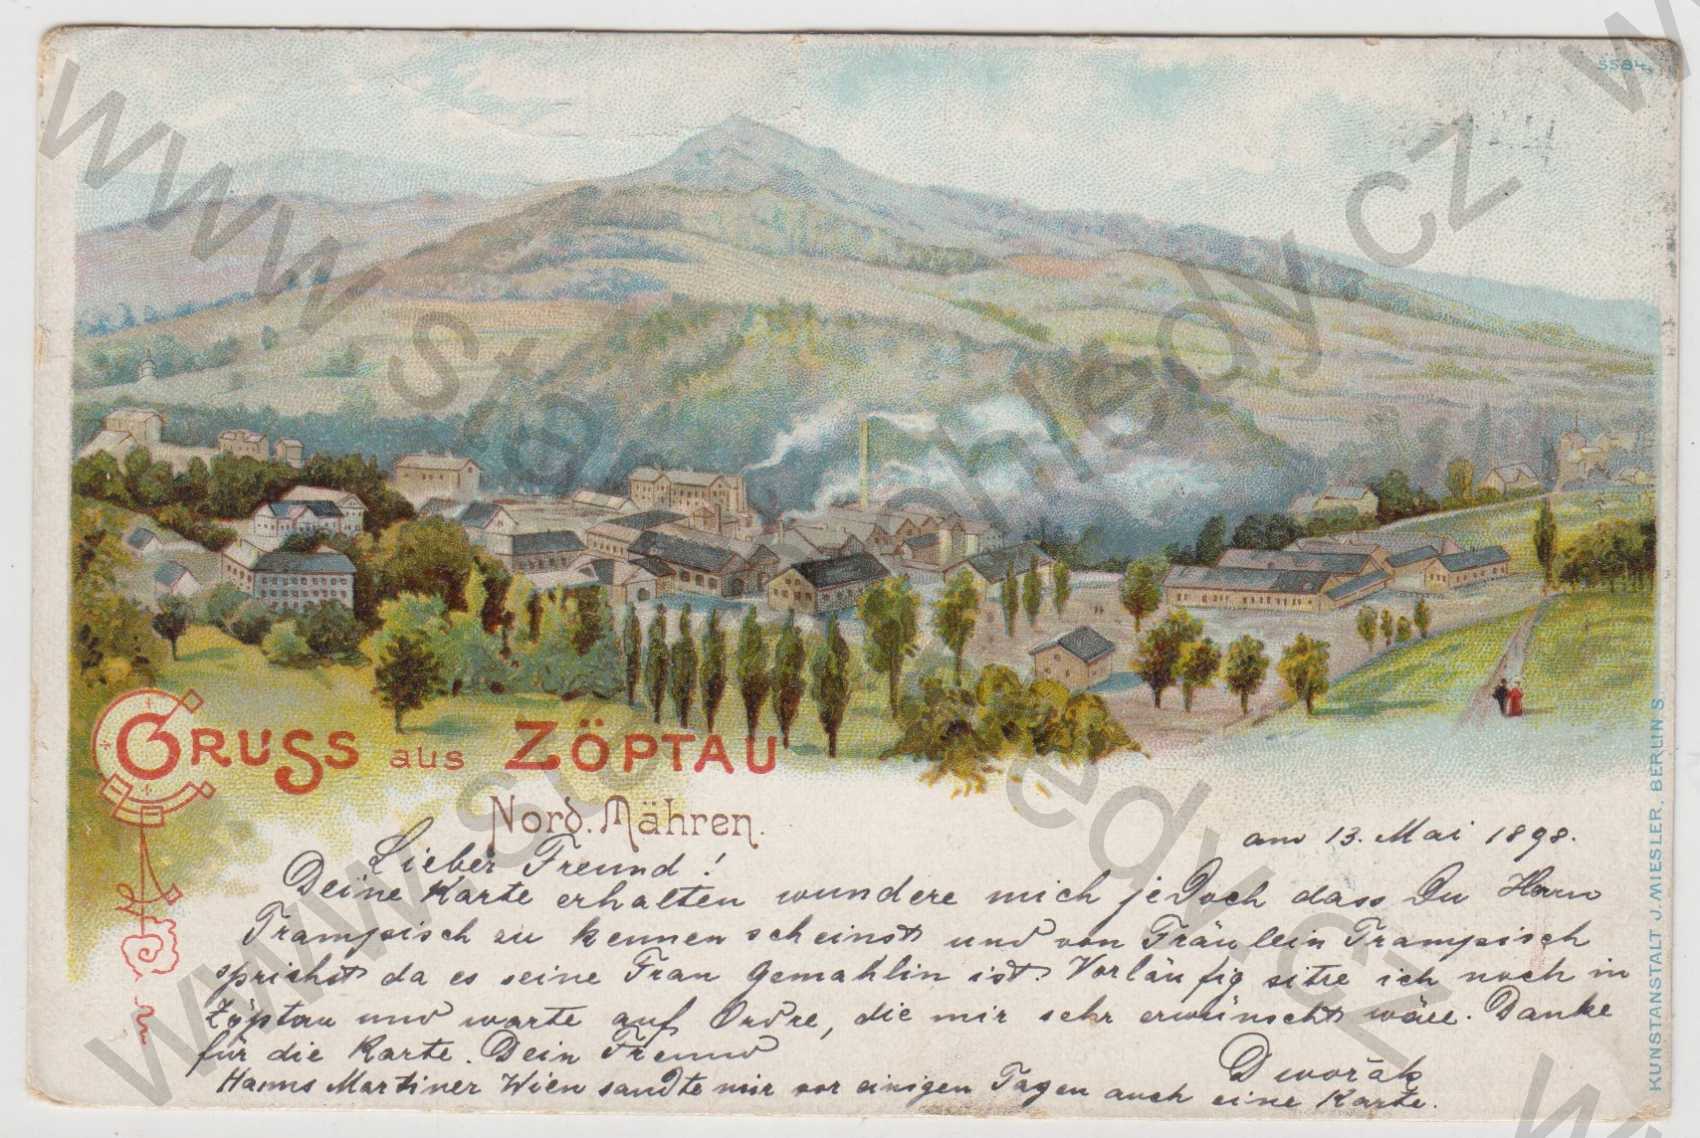 5584.
Gruss aus Zöptau
Nord. Mähren.
am 13. Mai 1898.
Lieber Freund!
Deine Karte erhalten wundere mich jedoch dass Du Herrn
Trampisch zu kennen scheinst und von Fräulein Trampisch
sprichst da es seine Frau Gemahlin ist. Vorläufig sitze ich noch in
Zöptau und warte auf Ordre, die mir sehr erwünscht wäre. Danke
für die Karte. Dein Freund
Dworák
Hanns Martiner Wien sandte mir vor einigen Tagen auch eine Karte.
KUNSTANSTALT J. MIESLER, BERLIN S
www.stare-pohledy.cz
www.stare-pohledy.cz